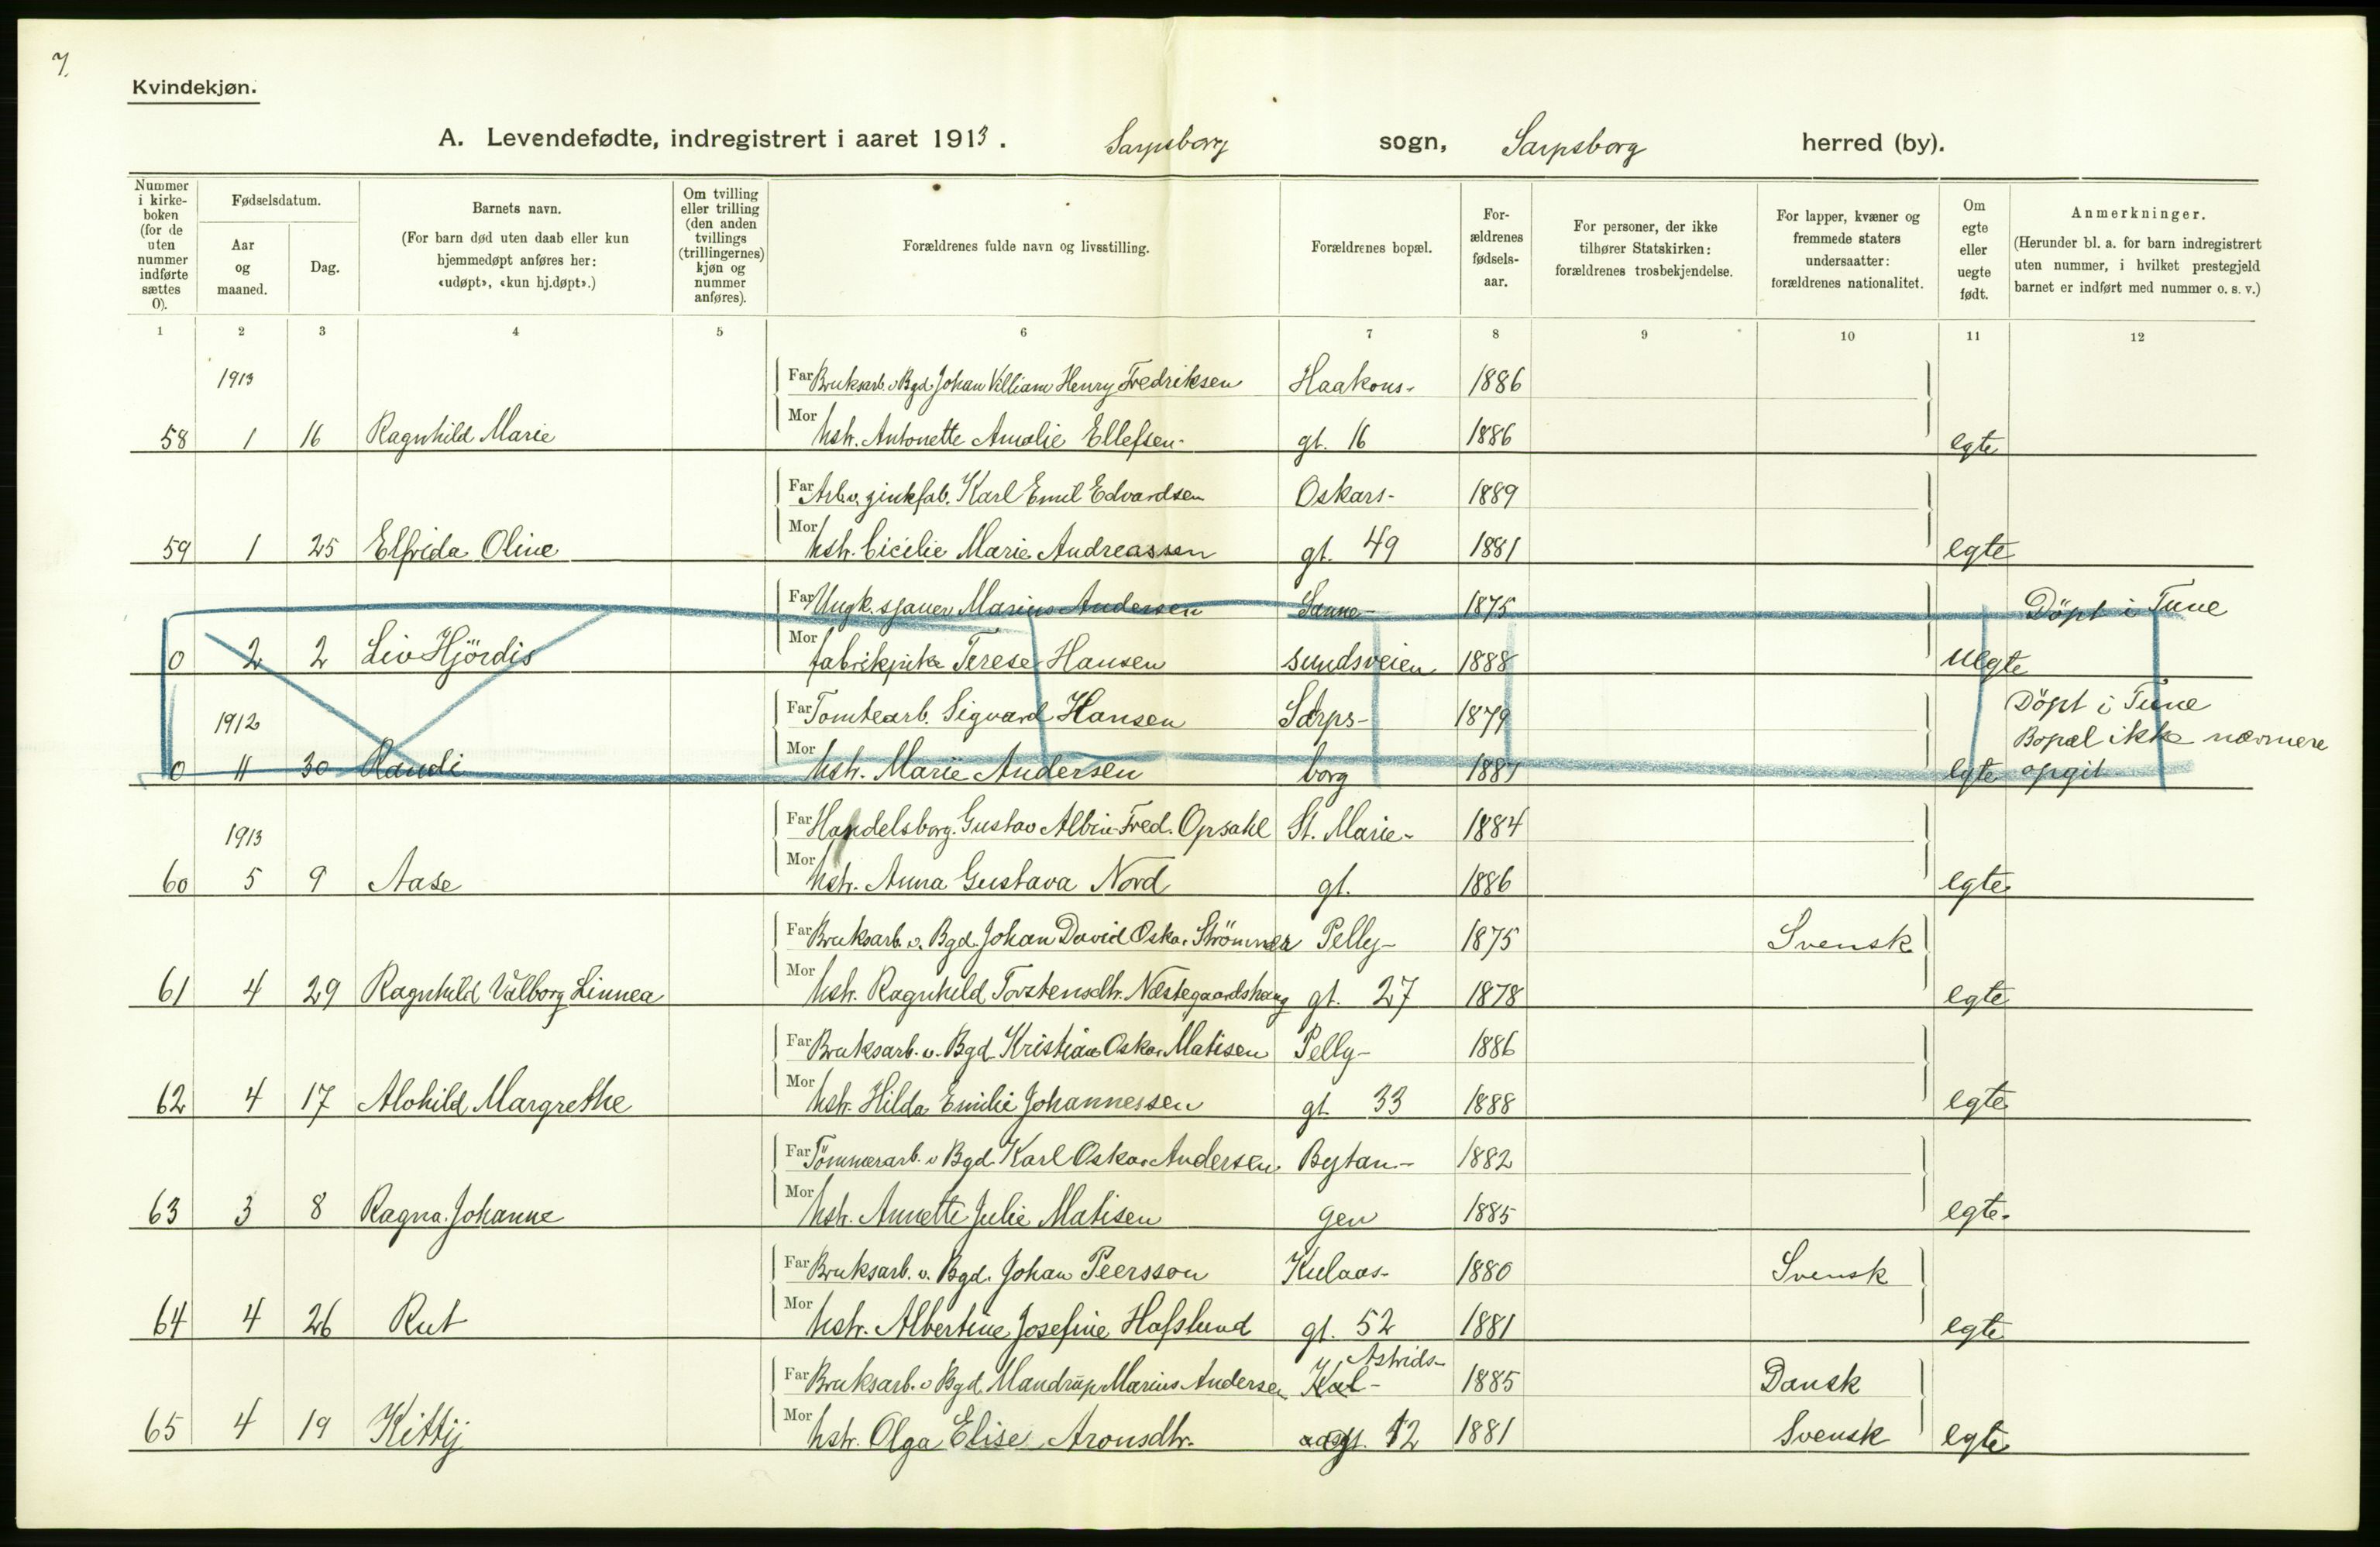 7.
Kvindekjøn.
A. Levendefødte, indregistrert i aaret 1913. Sarpsborg sogn, Sarpsborg herred (by).
Nummer i kirke-boken (for de uten nummer indførte sættes 0).
Fødselsdatum.
Aar og maaned.
Dag.
Barnets navn.
(For barn død uten daab eller kun hjemmedøpt anføres her: «udøpt», «kun hj.døpt».)
Om tvilling eller trilling (den anden tvillings (trillingernes) kjøn og nummer anføres).
Forældrenes fulde navn og livsstilling.
Forældrenes bopæl.
For-ældrenes fødsels-aar.
For personer, der ikke tilhører Statskirken: forældrenes trosbekjendelse.
For lapper, kvæner og fremmede staters undersaatter: forældrenes nationalitet.
Om egte eller uegte født.
Anmerkninger.
(Herunder bl. a. for barn indregistrert uten nummer, i hvilket prestegjeld barnet er indført med nummer o. s. v.)
1 2 3 4 5 6 7 8 9 10 11 12
1913 Far Bruksarb. v. Bgd. Johan Villiam Henry Fredriksen Haakons- 1886
58 1 16 Ragnhild Marie Mor hstr. Antonette Amalie Ellefsen gt. 16 1886 egte
Far Arb. v. zinkfab. Karl Emil Edvardsen Oskars- 1889
59 1 25 Elfrida Oline Mor hstr. Cicilie Marie Andreassen gt. 49 1881 egte
Far Ungk. sjauer Marius Andersen Sanne- 1875 Döpt i Tune
0 2 2 Liv Hjördis Mor fabrikpike Terese Hansen sundsveien 1888 uegte
1912 Far Tomtearb. Sigvard Hansen Sarps- 1879 Döpt i Tune
Bopæl ikke nærmere
0 11 30 Randi Mor hstr. Marie Andersen borg 1881 egte opgit
1913 Far Handelsborg. Gustav Albin Fred. Opsahl St. Marie- 1884
60 5 9 Aase Mor hstr. Anna Gustava Nord gt. 1886 egte
Far Bruksarb. v. Bgd. Johan David Oskar Strömner Pelly- 1875 Svensk
61 4 29 Ragnhild Valborg Linnea Mor hstr. Ragnhild Torstensdtr. Næstegaardshaug gt. 27 1878 egte
Far Bruksarb. v. Bgd. Kristian Oskar Matisen Pelly- 1886
62 4 17 Alohild Margrethe Mor hstr. Hilda Emilie Johannessen gt 33 1888 egte
Far Tömmerarb. v Bgd. Karl Oskar Andersen Bytan- 1882
63 3 8 Ragna Johanne Mor hstr. Annette Julie Matisen gen 1885 egte
Far Bruksarb. v. Bgd. Johan Peersson Kulaas- 1880 Svensk
64 4 26 Rut Mor hstr. Albertine Josefine Hafslund gt. 52 1881 egte
Astrids-
Far Bruksarb. v Bgd. Mandrup Marius Andersen Kul- 1885 Dansk
65 4 19 Kittij Mor hstr. Olga Elise Aronsdtr. aasgt. 12 1881 Svensk egte